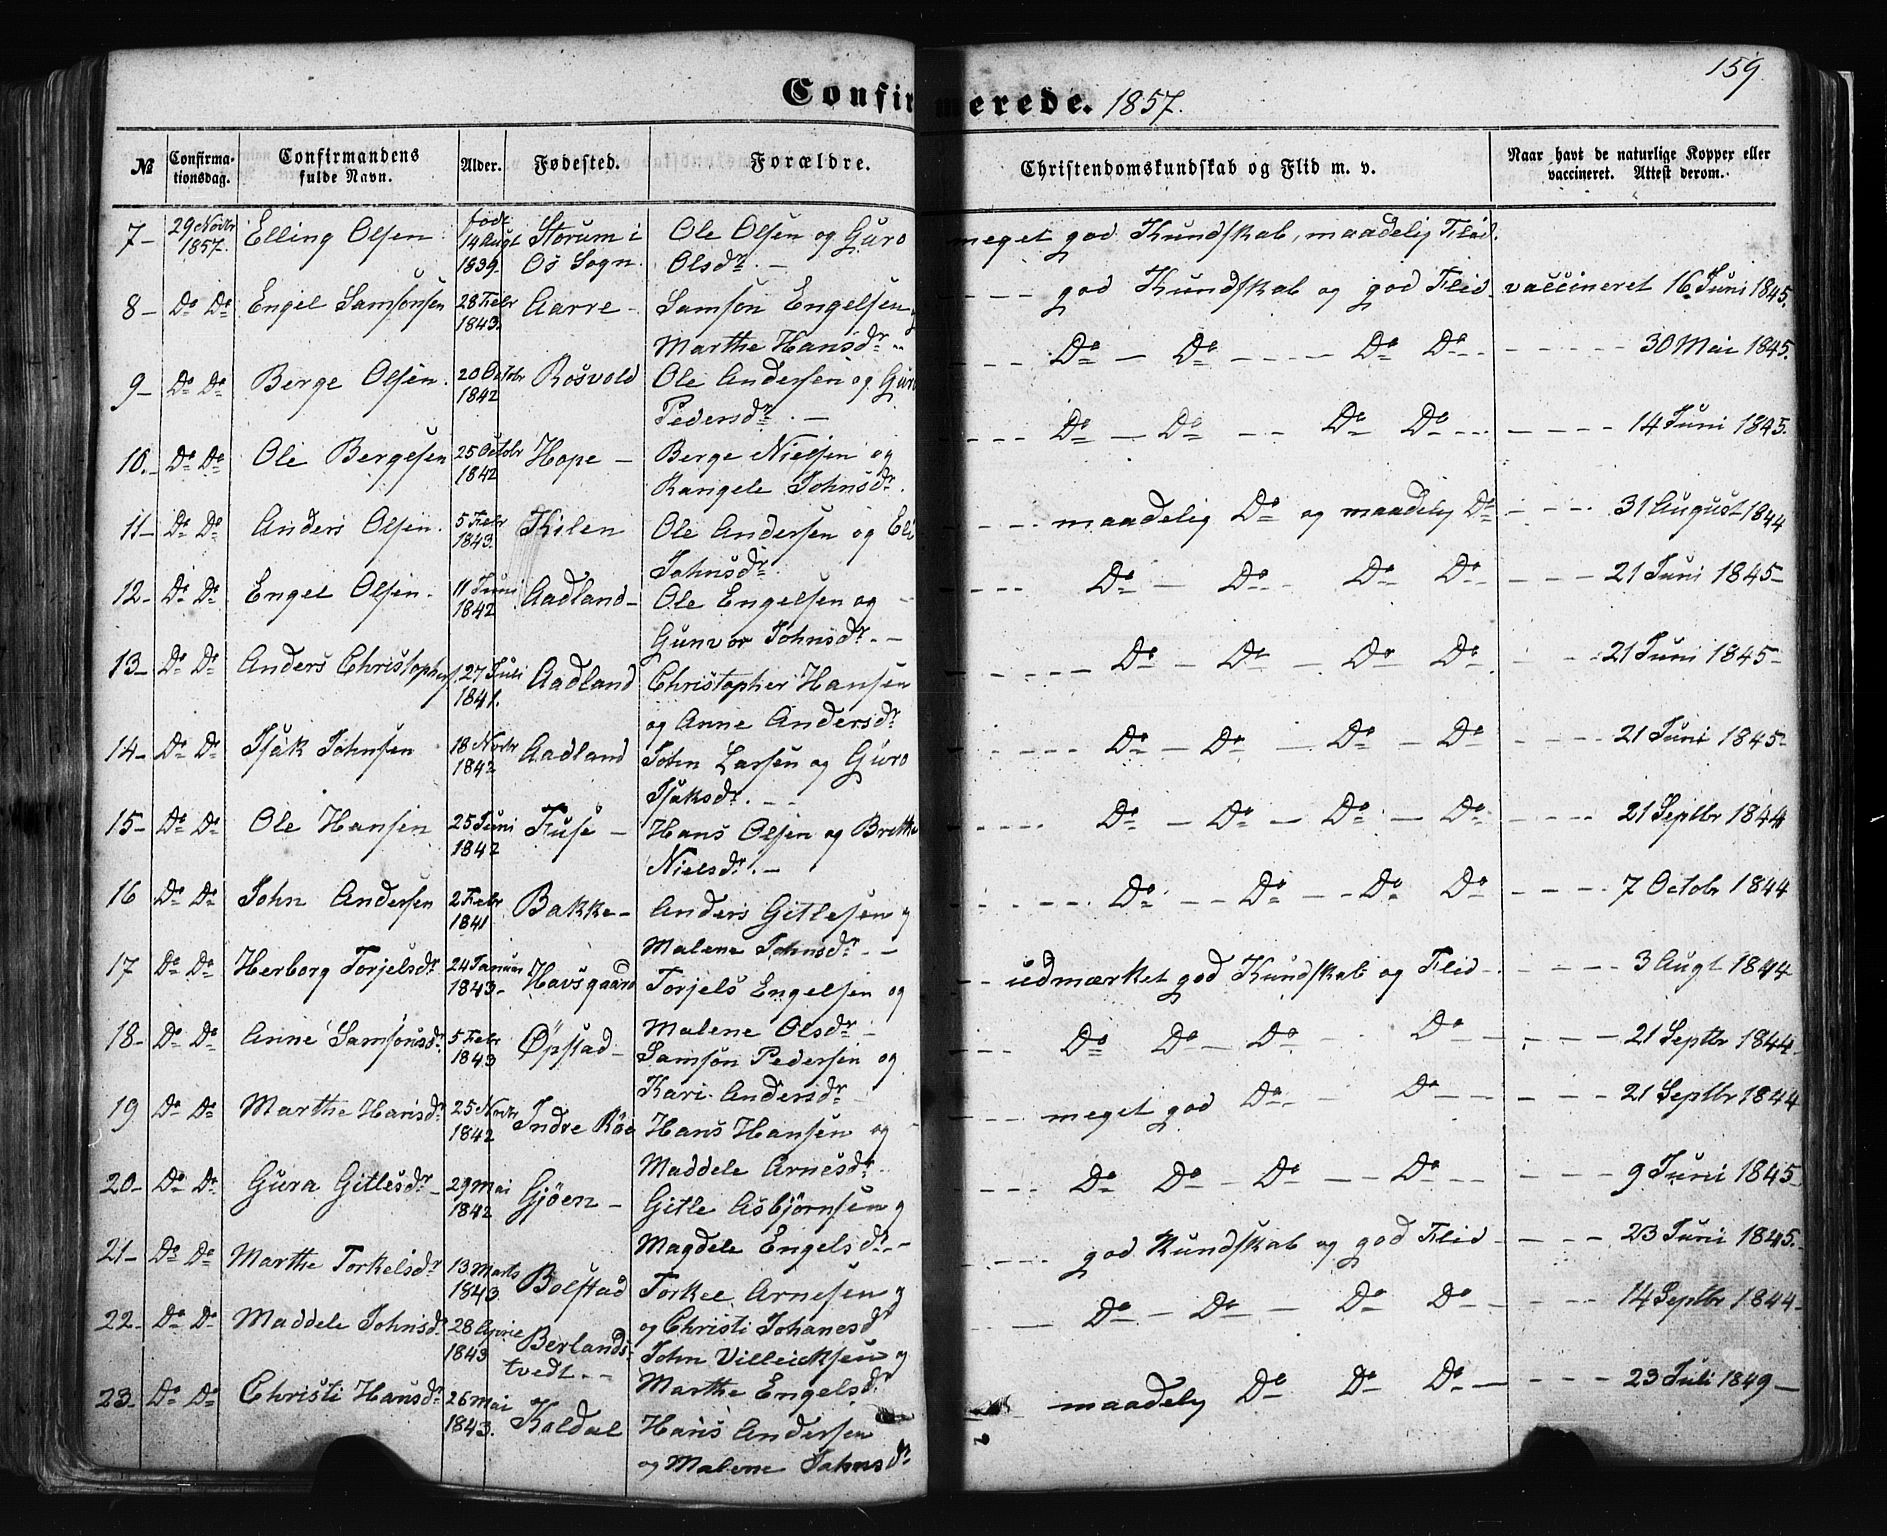 159
Confirmerede. 1857.
№ Confirmationsdag. Confirmandens fulde Navn. Alder. Fødested. Forældre. Christendomskundskab og Flid m. v. Naar havt de naturlige Kopper eller vaccineret. Attest derom.
7- 29 Novbr 1857. Elling Olsen født 14 Augt 1839. Storum i Os Sogn. Ole Olsen og Guro Olsdr. - meget god Kundskab, maadelig Flid.
8- Do Do Engel Samsonsen 28 Febr 1843. Aarre - Samson Engelsen og Marthe Hansdr - - - god Kundskab og god Flid - vaccineret 16 Juni 1845.
9- Do Do Berge Olsen. 20 Octobr 1842 Rosvold Ole Andersen og Guro Pedersdr. - - - - Do - Do - - - - Do Do - - - - - 30 Mai 1845.
10.- Do Do Ole Bergesen 25 Octobr 1842 Hope - Berge Nielsen og Rangele Johnsdr. - - - Do - Do - - Do Do - - - - - 14 Juni 1845.
11- Do Do Anders Olsen. 5 Febr 1843. Kilen Ole Andersen og Eli Johnsdr - - - maadelig Do og maadelig Do - - - 31 August 1844
12- Do Do Engel Olsen. 11 Juni 1842 Aadland - Ole Engelsen og Gunvor Johnsdr. - - - - Do - Do - Do Do - - - - 21 Juni 1845-
13- Do Do Anders Christophers. 27 Juli 1841. Aadland Christopher Hansen og Anne Andersdr - - - - Do - Do - Do - Do - - - 21 Juni 1845-
14- Do Do Isak Johnsen 18 Novbr 1842 Aadland John Larsen og Guro Isaksdr. - - - - - - Do - Do - Do - Do - - - - 21 Juni 1845-
15- Do Do Ole Hansen 25 Juni 1842 Fuse - Hans Olsen og Brithe Nielsdr. - - - - - Do - Do - Do - Do - - - - 21 Septbr 1844
16 Do Do John Andersen 2 Febr 1841. Bakke - Anders Gitlesen og Malene Johnsdr. - - - - - Do - - Do - - Do Do - - - - 7 Octobr 1844
17 Do Do Herborg Torjelsdr 24 Januar 1843- Havsgaard Torjels Engelsen og Malene Olsdr - - - udmærket god Kundskab og Flid - - - - 3 Augt 1844
18- Do Do Anne Samsonsdr. 5 Febr 1843 Øpstad - Samson Pedersen og Kari Andersdr - - - Do Do - Do - - Do - - - - 21 Septbr 1844-
19 Do Do Marthe Hansdr 25 Novbr 1842 Indre Røe Hans Hansen og Maddele Arnesdr. - - - meget god Do - - Do - - - - 21 Septbr 1844
20- Do Do Gura Gitlesdr - 29 Mai 1842 Gjøen - Gitle Asbjørnsen og Magdele Engelsdr. - - - - Do Do - Do - - Do - - - - - 9 Juni 1845-
21- Do Do Marthe Torkelsdr 13 Marts 1843 Bolstad Torkel Arnesen og og Christi Johanesdr god Kundskab og god Flid - - - - 23 Juni 1845.
22- Do Do Maddele Johnsdr 28 April 1843 Berlandstvedt - John Villicksen og Marthe Engelsdr. - - - Do - Do - Do Do - - - - 14 Septbr 1844-
23- Do Do Christi Hansdr 26 Mai 1843. Kaldal Hans Andersen og Malene Johnsdr maadelig Do - Do Do - - - - 23 Juli 1849 -